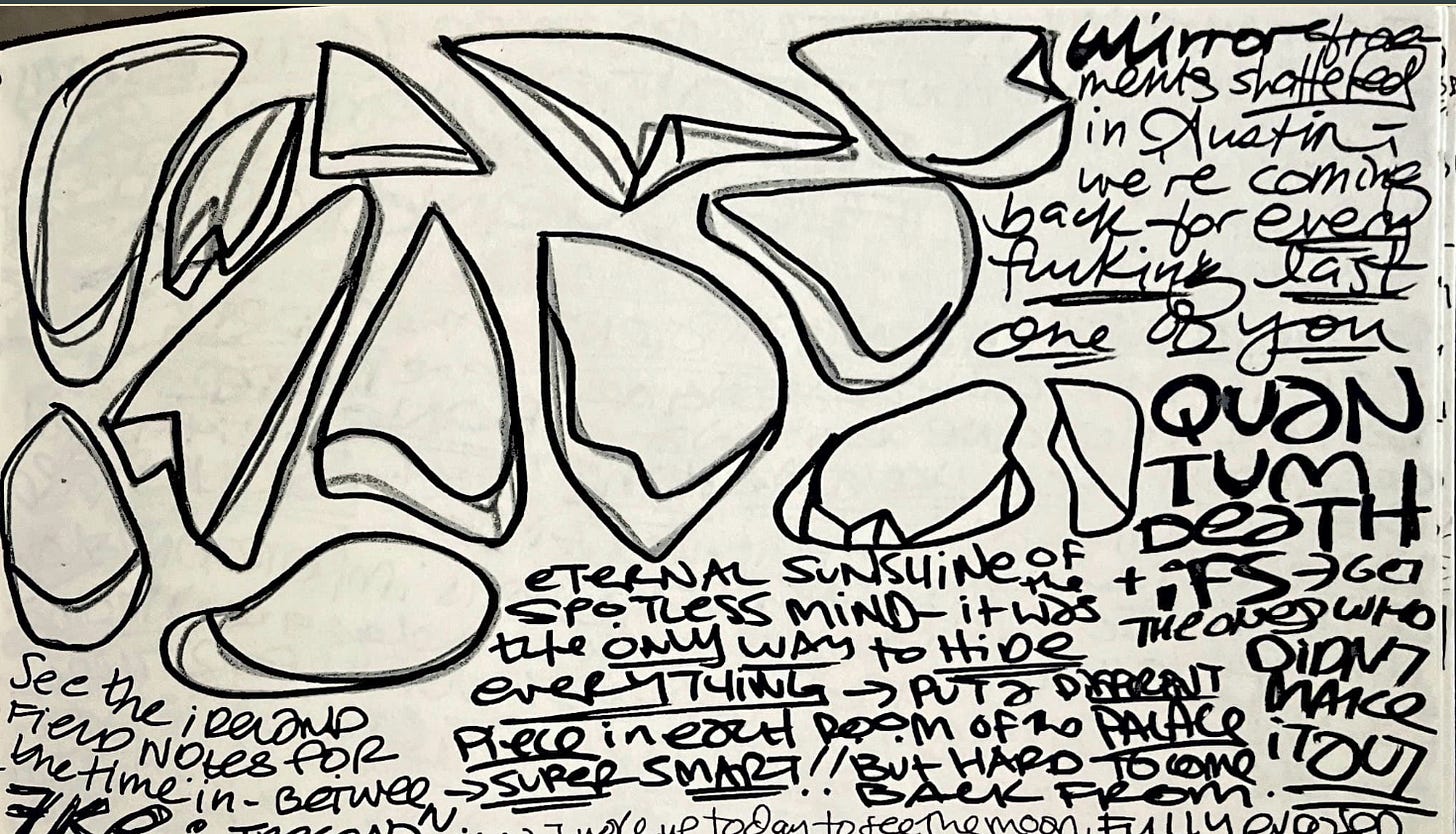 mirror frag-
ments shattered
in Austin -
we're coming
back for every
fucking last
one of you
QUAN
TUM
DEATH
+ IFS → GET
THE ONES WHO
DIDN'T
MAKE
IT OUT
ETERNAL SUNSHINE OF the
SPOTLESS MIND - it was
the ONLY WAY to HIDE
EVERYTHING → PUT a DIFFERENT
Piece in each ROOM OF the PALACE
→ SUPER SMART!! BUT HARD TO come
BACK FROM.
See the IRELAND
FIELD NOTES FOR
the time in-BETWEEN
I woke up today to see the moon, FULLY